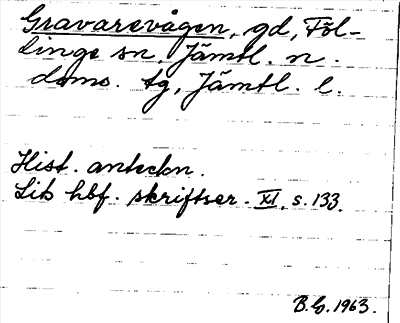 Gravarevågen, gd, Föl-
linge sn, Jämtl. n.
doms. tg, Jämtl. l.
Hist. anteckn.
Lib hbf. skriftser. XI, s. 133.
B.G. 1963.